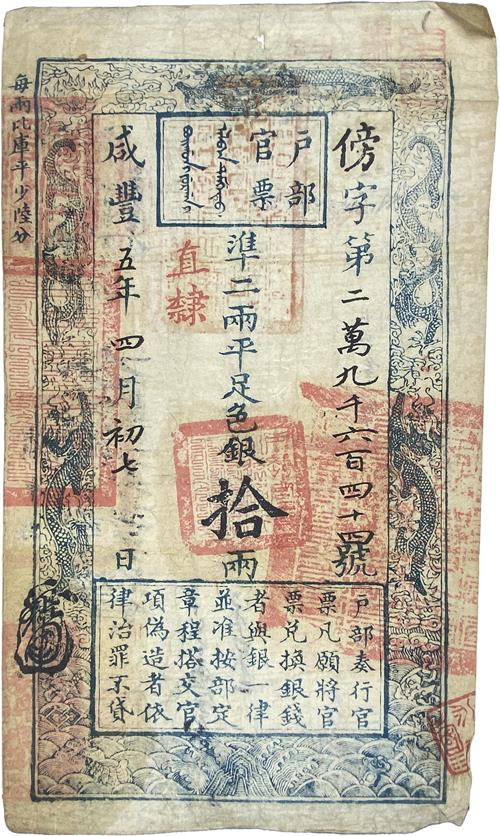 傍字第二萬九千六百四十四號
户部
官票
準二兩平足色銀拾兩
直隸
咸豐五年四月初七日
户部奏行官
票凡願將官
票兌換銀錢
者與銀一律
並准按部定
章程搭交官
項偽造者依
律治罪不貸
每兩比庫平少陸分